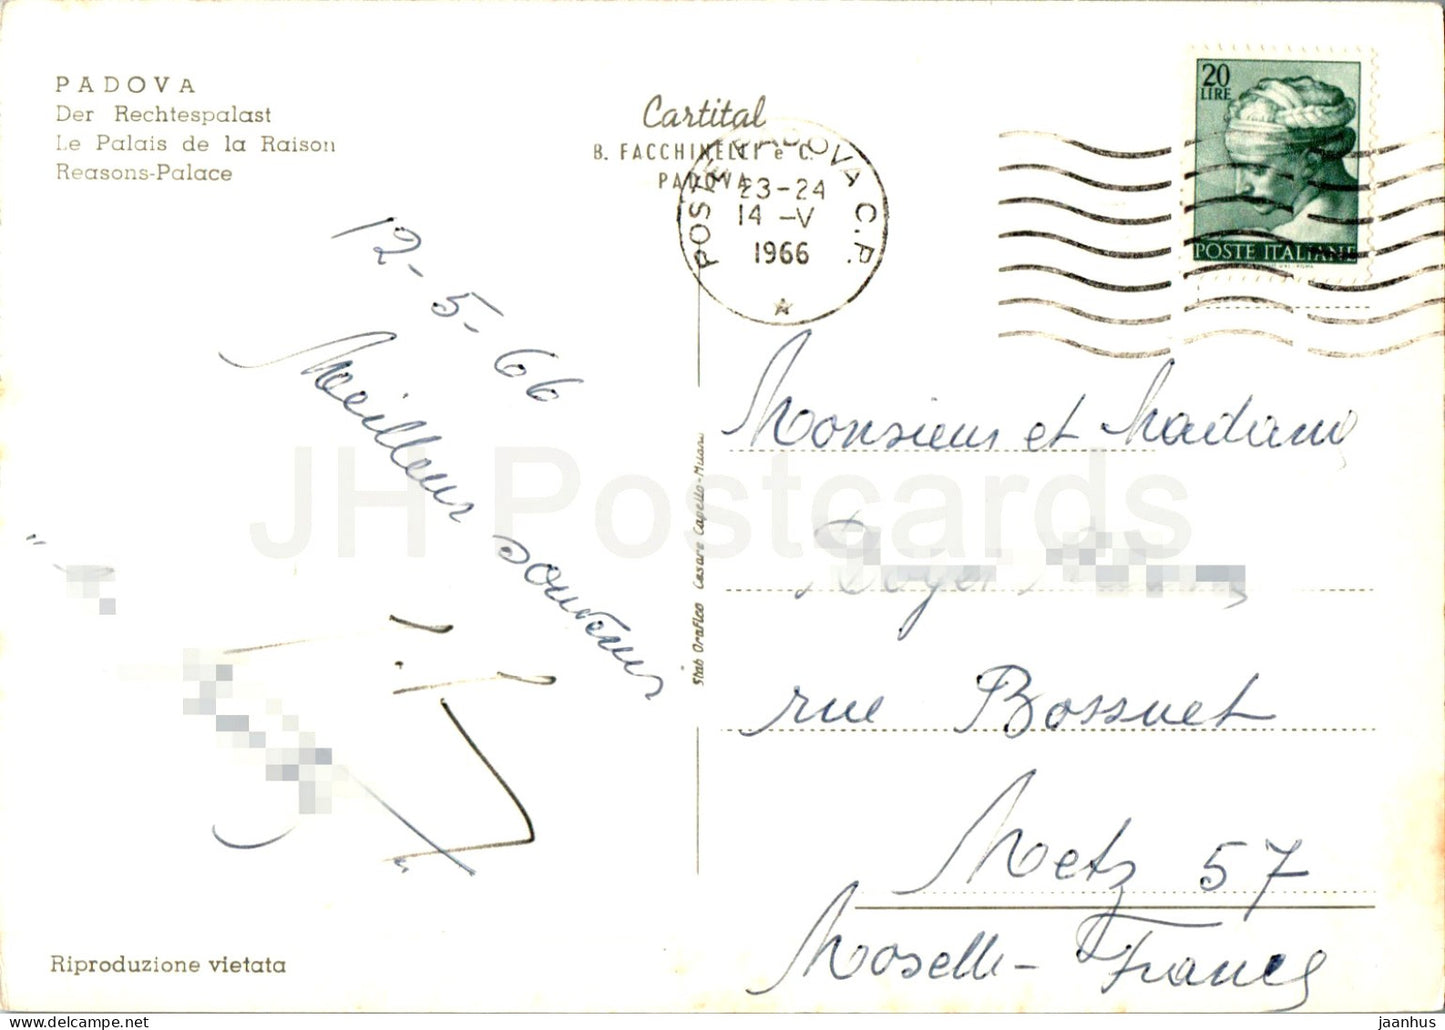 PADOVA
Der Rechtespalast
Le Palais de la Raison
Reasons-Palace
Cartital
B. FACCHINELLI e C.
PADOVA
POSTE PADOVA C.P.
23-24
14 -V
1966
20
LIRE
POSTE ITALIANE
12-5-66
Meilleurs souvenirs
Stab Grafico Cesare Capello-Milano
Monsieur et Madame
Roger
rue Bossuet
Metz 57
Moselle - France
Riproduzione vietata
JH Postcards
jaanhus @ delcampe.net